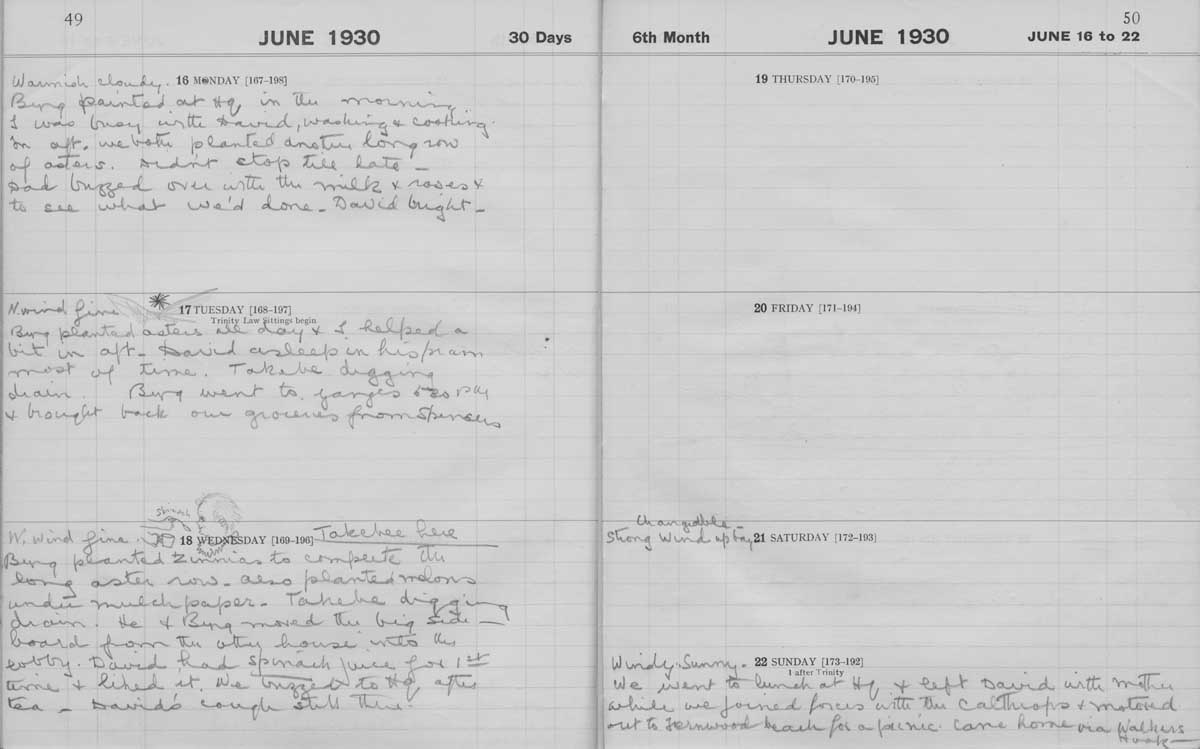 49
JUNE 1930
30 Days
Warmish cloudy. 16 MONDAY [167–198]
Bing painted at Hq in the morning
I was busy with David, washing & cooking.
In aft. we both planted another long row
of asters. Didn't stop till late –
Dad buzzed over with the milk & roses &
to see what we'd done – David bright –
N. wind fine 17 TUESDAY [168–197]
Trinity Law Sittings begin
Bing planted asters all day & I helped a
bit in aft – David asleep in his pram
most of time. Takebe digging
drain. Bing went to Ganges
& brought back our groceries from Spencers
Spinach
W. wind fine. 18 WEDNESDAY [169–196] Takebee here
Bing planted Zinnias to complete the
long aster row – also planted melons
under mulch paper – Takebe digging
drain. He & Bing moved the big side –
board from the other house into the
lobby. David had spinach juice for 1st
time & liked it. We buzzed to Hq after
tea – David's cough still there.
50
6th Month
JUNE 1930
JUNE 16 to 22
19 THURSDAY [170–195]
20 FRIDAY [171–194]
Changeable –
Strong wind up bay 21 SATURDAY [172–193]
Windy. Sunny – 22 SUNDAY [173–192]
1 after Trinity
We went to lunch at Hq & left David with mother
while we joined forces with the Calthrops & motored
out to Fernwood beach for a picnic. Came home via Walkers
Hook –